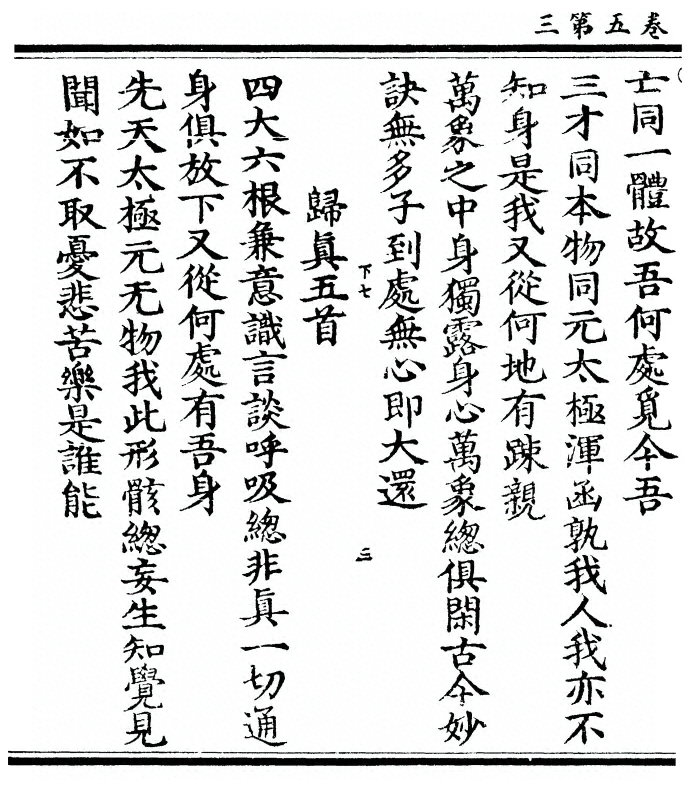 三第五卷
亡同一體故吾何處覓今吾
三才同本物同元太極渾函孰我人我亦不
知身是我又從何地有踈親
萬象之中身獨露身心萬象緫俱閑古今妙
訣無多子到處無心即大還
下七 三
歸眞五首
四大六根兼意識言談呼吸緫非眞一切通
身俱放下又從何處有吾身
先天太極元无物我此形骸緫妄生知覺見
聞如不取憂悲苦樂是誰能